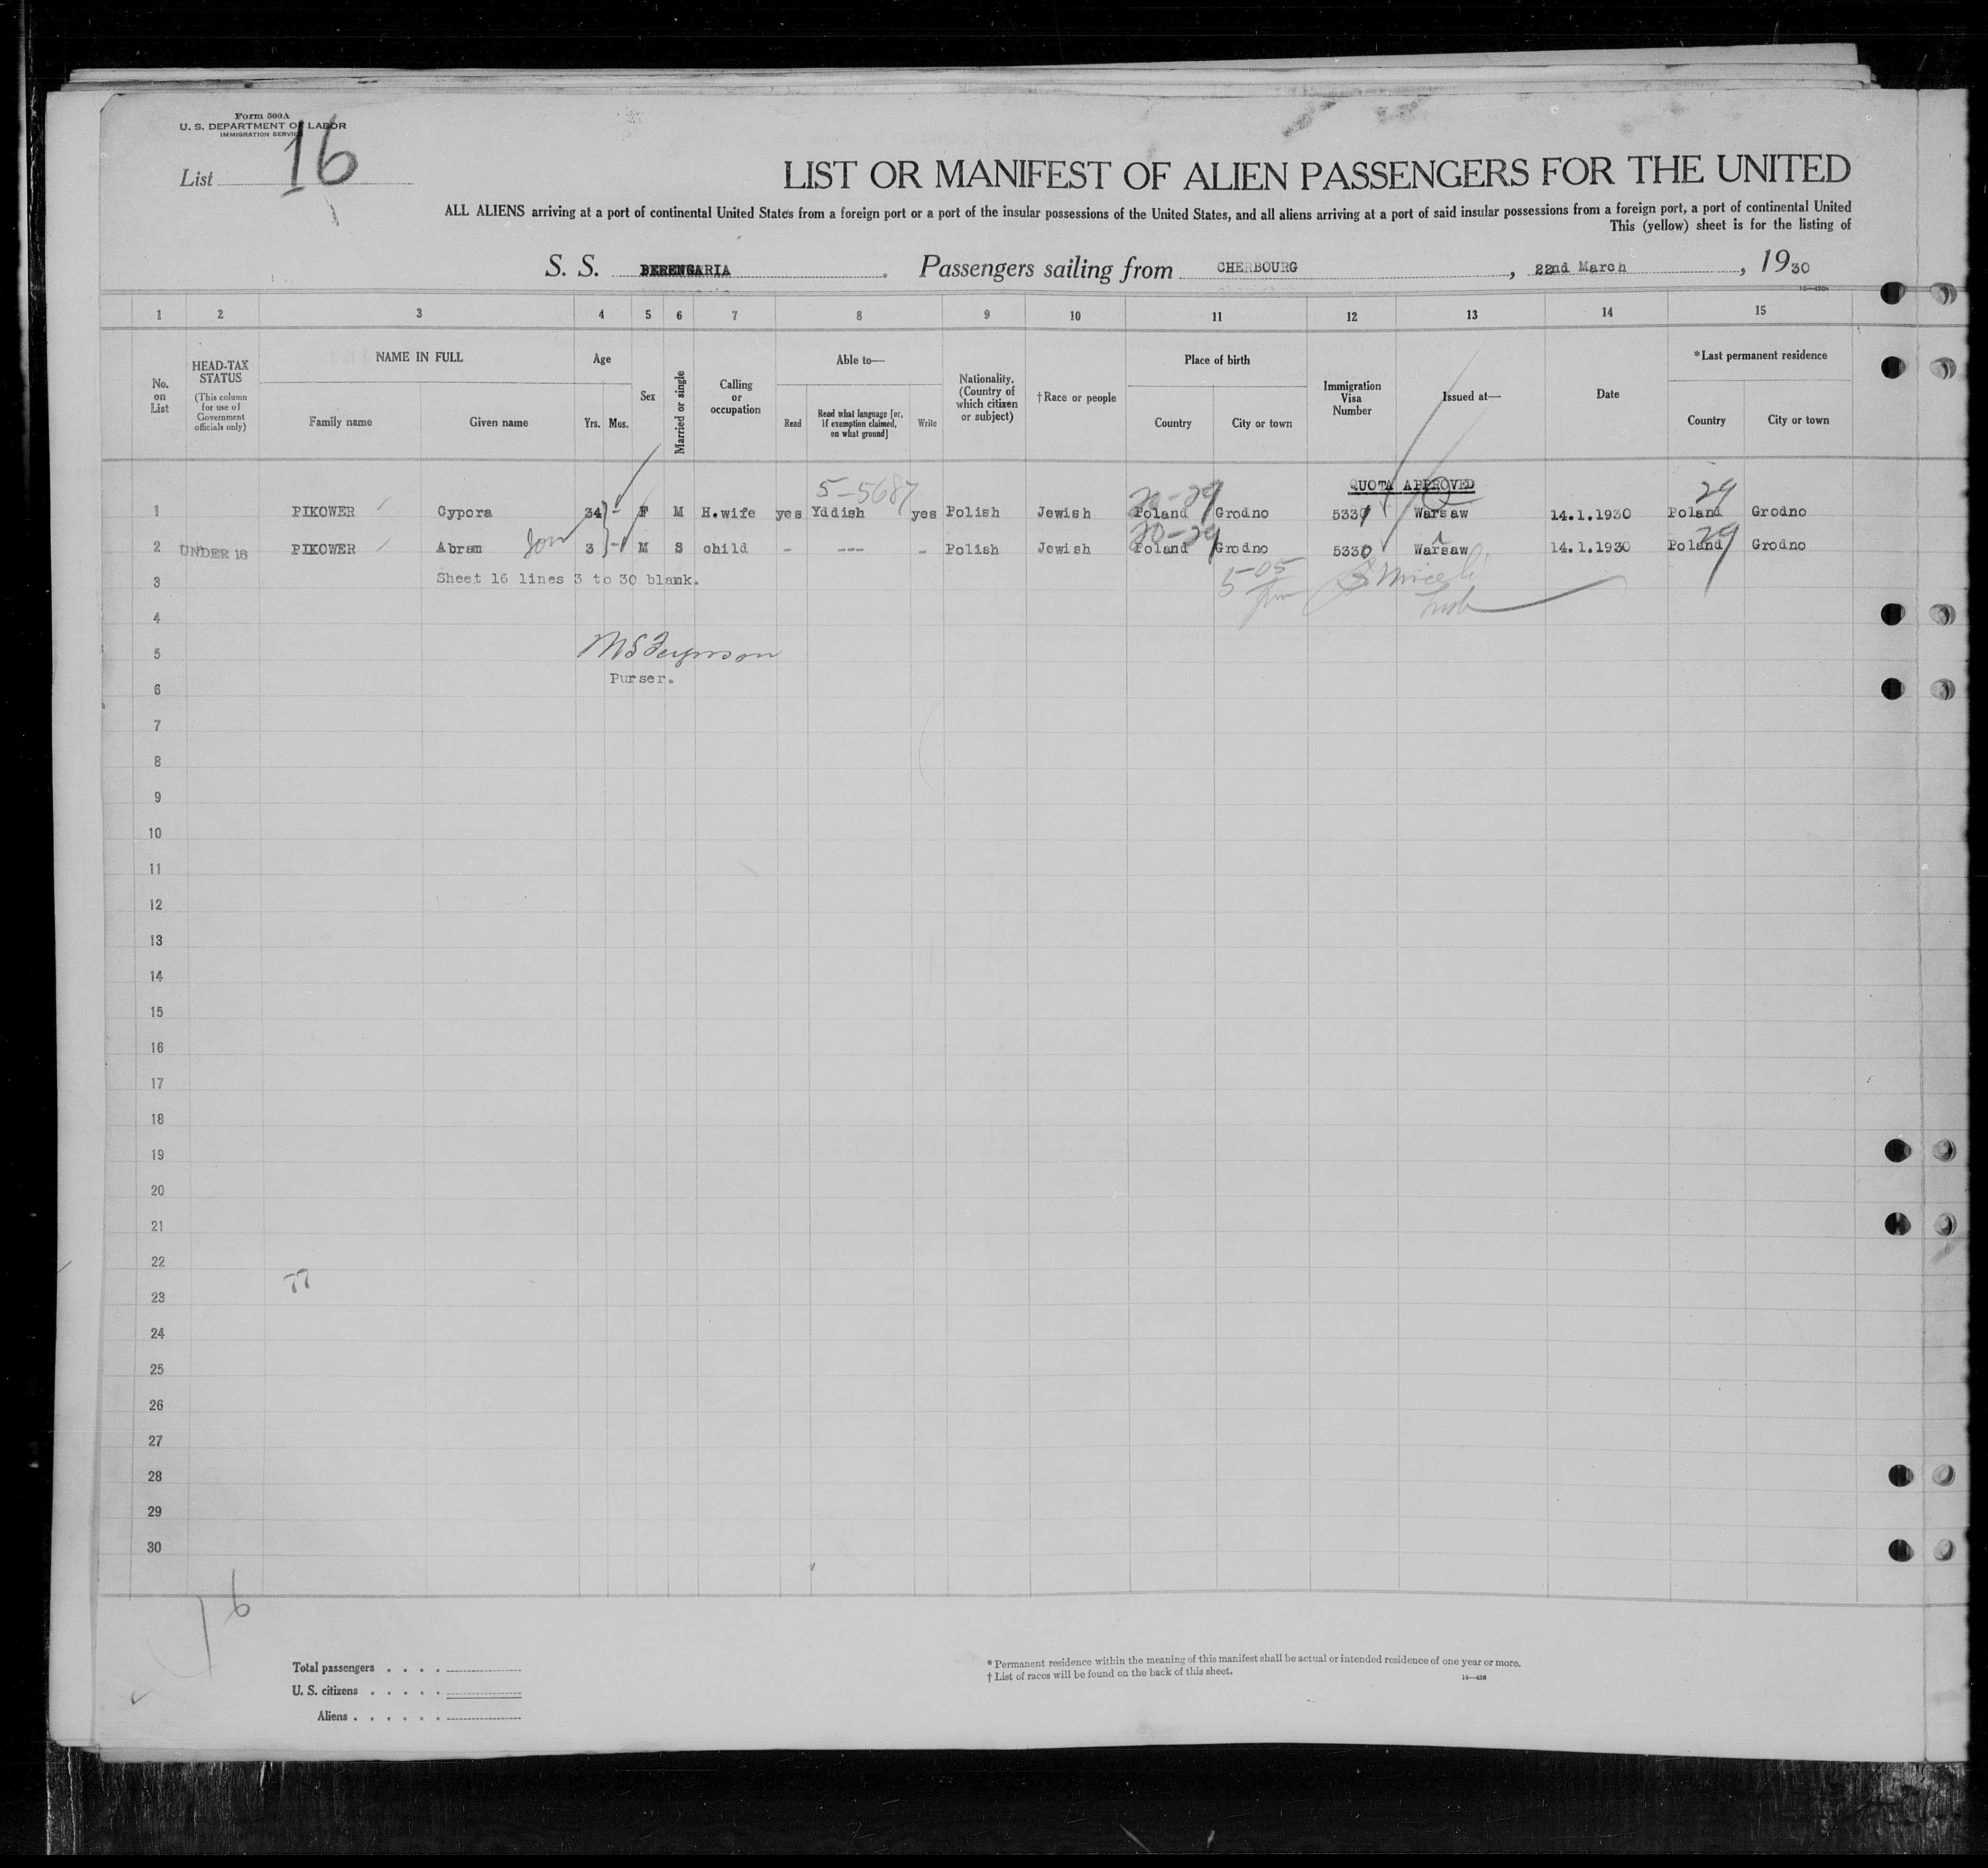 Form 500A
U. S. DEPARTMENT OF LABOR
IMMIGRATION SERVICE
List 16
LIST OR MANIFEST OF ALIEN PASSENGERS FOR THE UNITED
ALL ALIENS arriving at a port of continental United States from a foreign port or a port of the insular possessions of the United States, and all aliens arriving at a port of said insular possessions from a foreign port, a port of continental United
This (yellow) sheet is for the listing of
S. S. BERENGARIA . Passengers sailing from CHERBOURG , 22nd March , 1930
1 2 3 4 5 6 7 8 9 10 11 12 13 14 15
No. on List
HEAD-TAX STATUS (This column for use of Government officials only)
NAME IN FULL
Family name Given name
Age
Yrs. Mos.
Sex
Married or single
Calling or occupation
Able to—
Read
Read what language [or, if exemption claimed, on what ground]
Write
Nationality. (Country of which citizen or subject)
†Race or people
Place of birth
Country City or town
Immigration Visa Number
Issued at—
Date
*Last permanent residence
Country City or town
5-5687 QUOTA APPROVED
1 PIKOWER Cypora 34 - F M H.wife yes Yddish yes Polish Jewish Poland Grodno 5331 Warsaw 14.1.1930 Poland Grodno
2 UNDER 16 PIKOWER Abram son 3 - M S child - --- - Polish Jewish Poland Grodno 5330 Warsaw 14.1.1930 Poland Grodno
3 Sheet 16 lines 3 to 30 blank.
4
5 Ferguson
6 Purser.
7
8
9
10
11
12
13
14
15
16
17
18
19
20
21
22
23
24
25
26
27
28
29
30
16
Total passengers . . . .
U. S. citizens . . . . .
Aliens . . . . . .
* Permanent residence within the meaning of this manifest shall be actual or intended residence of one year or more.
† List of races will be found on the back of this sheet.